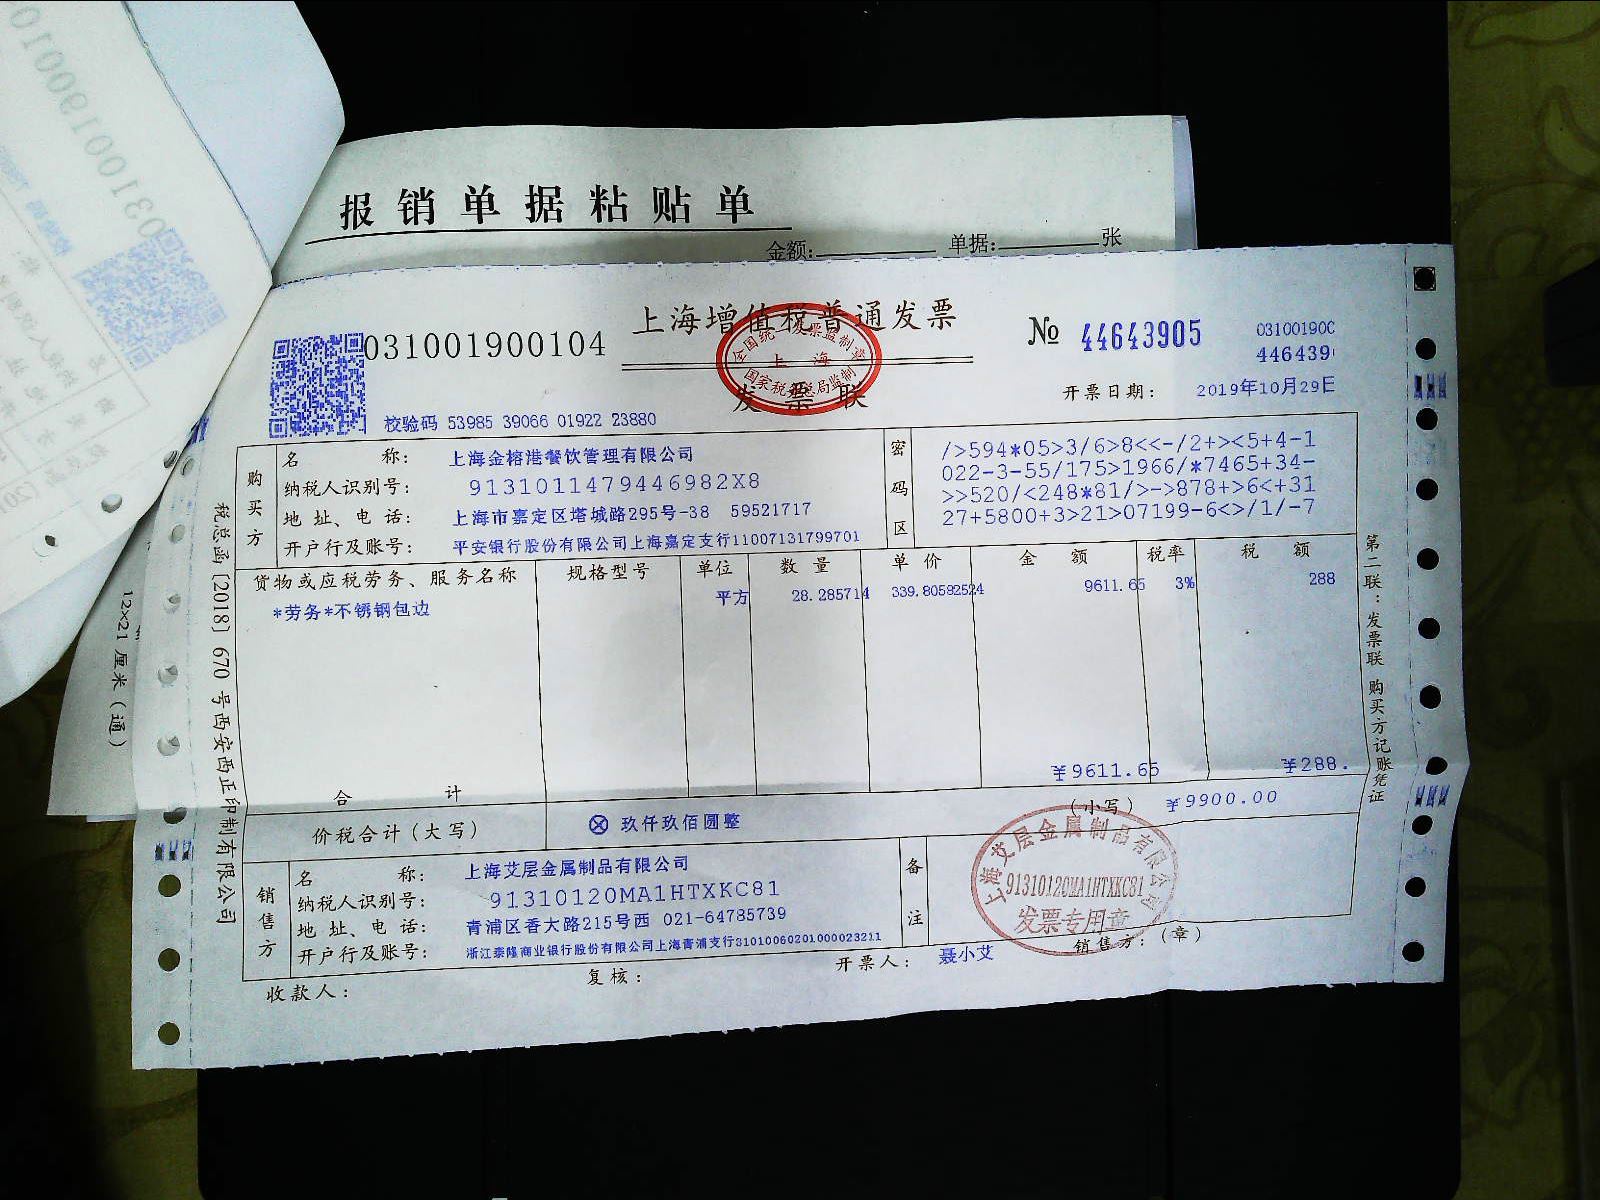 报销单据粘贴单
金额: 单据: 张
上海增值税普通发票
发票联
全国统一发票监制章
上海
国家税务总局监制
031001900104
№ 44643905
03100190
446439
校验码 53985 39066 01922 23880
开票日期: 2019年10月29日
购买方
名 称: 上海金榕港餐饮管理有限公司
纳税人识别号: 9131011479446982X8
地址、电话: 上海市嘉定区塔城路295号-38 59521717
开户行及账号: 平安银行股份有限公司上海嘉定支行11007131799701
密码区
/>594*05>3/6>8<<-/2+><5+4-1
022-3-55/175>1966/*7465+34-
>>520/<248*81/>->878+>6<+31
27+5800+3>21>07199-6<>/1/-7
货物或应税劳务、服务名称 规格型号 单位 数量 单价 金额 税率 税额
*劳务*不锈钢包边 平方 28.285714 339.80582524 9611.65 3% 288
合 计 ¥9611.65 ¥288.
价税合计(大写) ⊗ 玖仟玖佰圆整 (小写) ¥9900.00
销售方
名 称: 上海艾层金属制品有限公司
纳税人识别号: 91310120MA1HTXKC81
地址、电话: 青浦区香大路215号西 021-64785739
开户行及账号: 浙江泰隆商业银行股份有限公司上海青浦支行31010060201000023211
备注
上海艾层金属制品有限公司
91310120MA1HTXKC81
发票专用章
收款人: 复核: 开票人: 聂小艾 销售方:(章)
税总函[2018]670号西安西正印制有限公司
第二联:发票联 购买方记账凭证
12×21厘米(通)